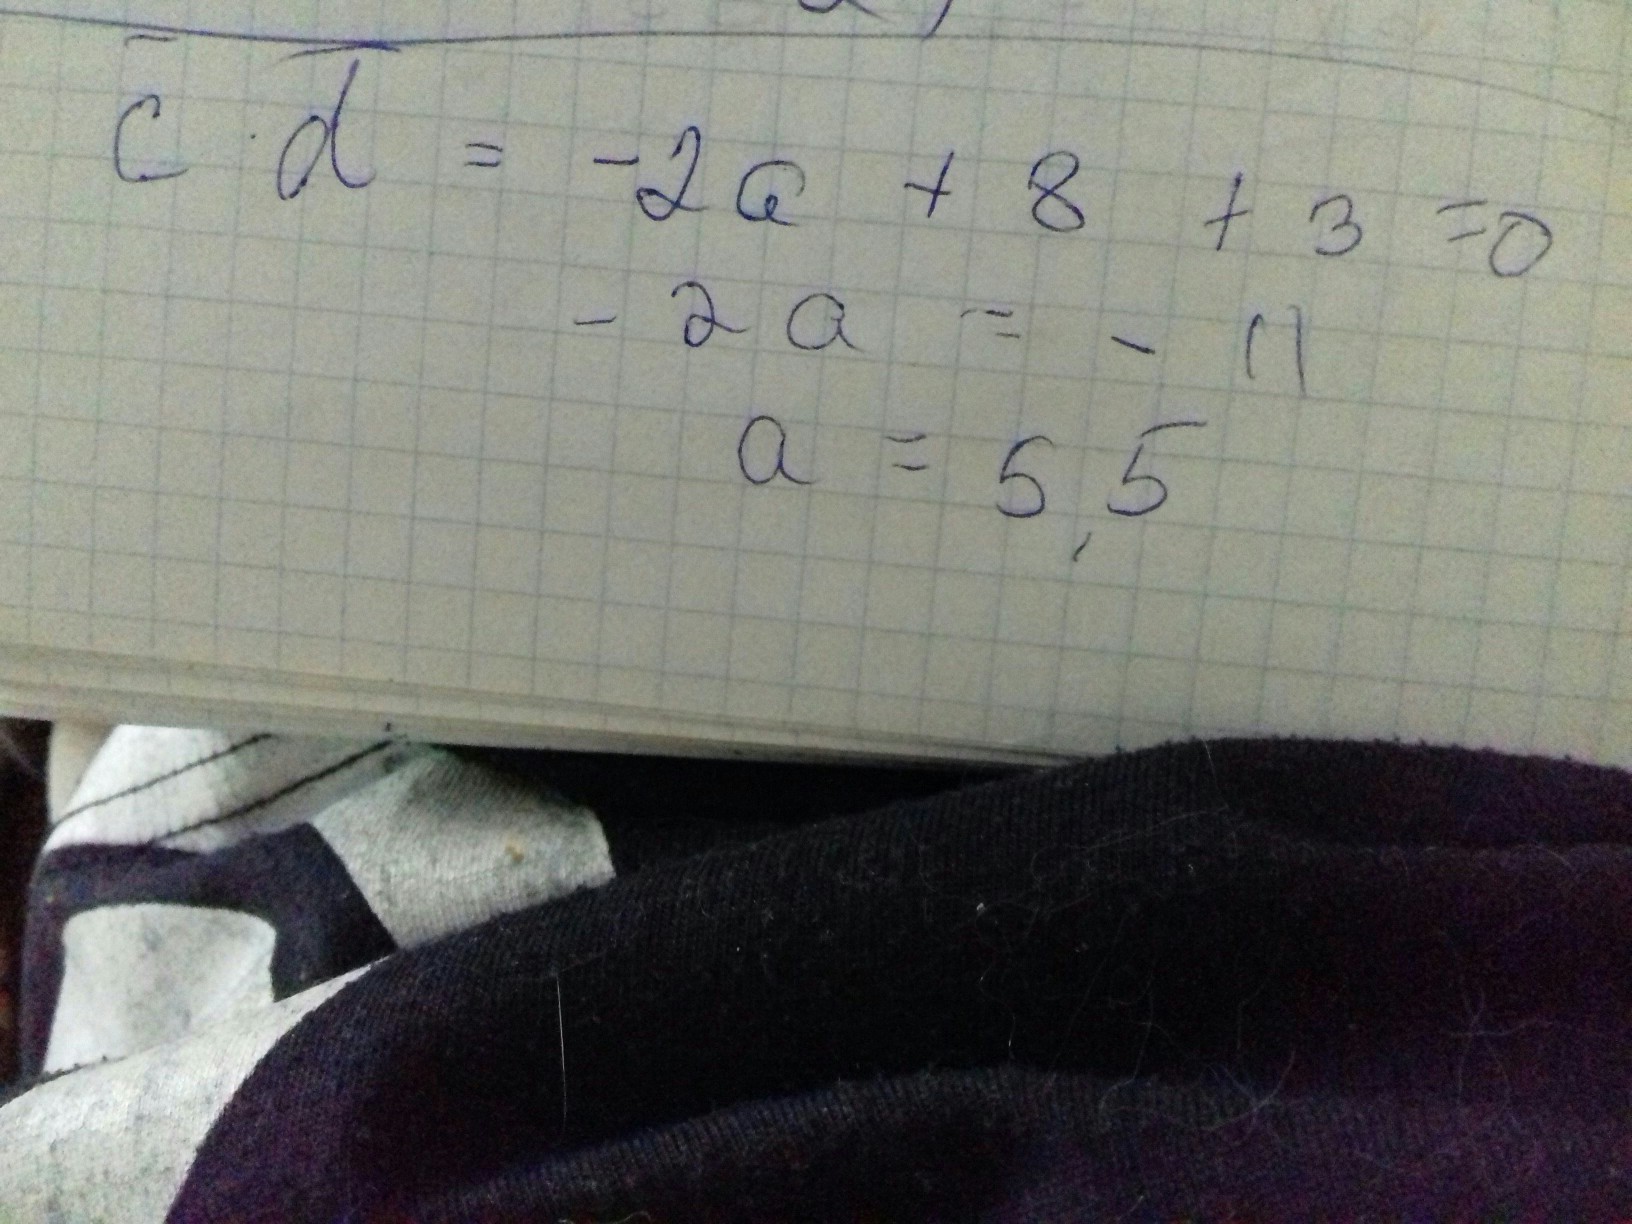 c̄ · d̄ = -2a + 8 + 3 = 0
- 2a = - 11
a = 5,5